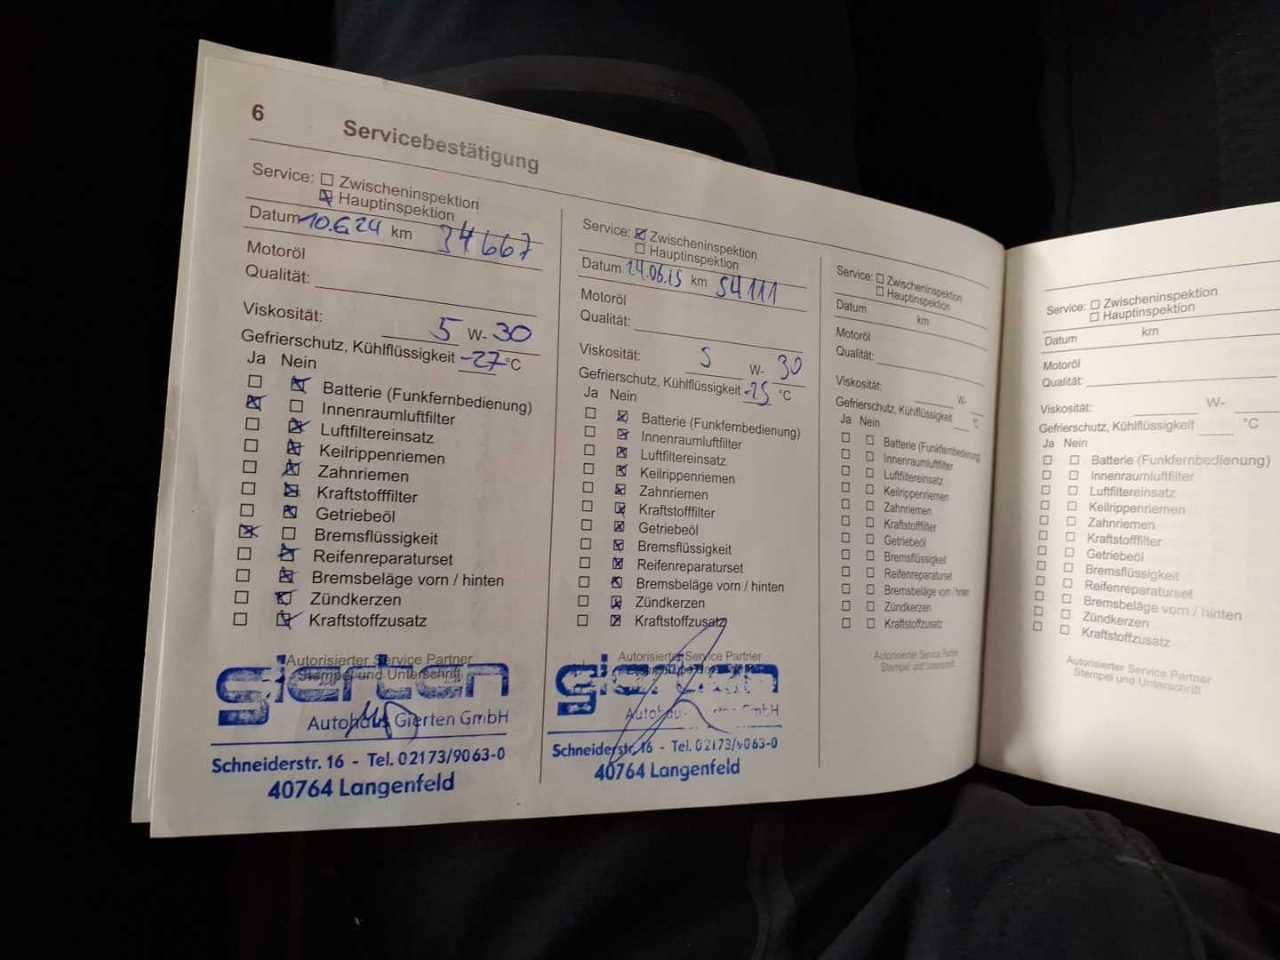 6 Servicebestätigung
Service: ☐ Zwischeninspektion
☒ Hauptinspektion
Datum 10.6.24 km 34667
Motoröl
Qualität:
Viskosität: 5 W- 30
Gefrierschutz, Kühlflüssigkeit -27 °C
Ja Nein
☐ ☒ Batterie (Funkfernbedienung)
☒ ☐ Innenraumluftfilter
☐ ☒ Luftfiltereinsatz
☐ ☒ Keilrippenriemen
☐ ☒ Zahnriemen
☐ ☒ Kraftstofffilter
☐ ☒ Getriebeöl
☒ ☐ Bremsflüssigkeit
☐ ☒ Reifenreparaturset
☐ ☒ Bremsbeläge vorn / hinten
☐ ☒ Zündkerzen
☐ ☒ Kraftstoffzusatz
Autorisierter Service Partner
Stempel und Unterschrift
gierten
Autohaus Gierten GmbH
Schneiderstr. 16 - Tel. 02173/9063-0
40764 Langenfeld
Service: ☒ Zwischeninspektion
☐ Hauptinspektion
Datum 14.06.15 km 54111
Motoröl
Qualität:
Viskosität: 5 W- 30
Gefrierschutz, Kühlflüssigkeit -25 °C
Ja Nein
☐ ☒ Batterie (Funkfernbedienung)
☐ ☒ Innenraumluftfilter
☐ ☒ Luftfiltereinsatz
☐ ☒ Keilrippenriemen
☐ ☒ Zahnriemen
☐ ☒ Kraftstofffilter
☐ ☒ Getriebeöl
☐ ☒ Bremsflüssigkeit
☐ ☒ Reifenreparaturset
☐ ☒ Bremsbeläge vorn / hinten
☐ ☒ Zündkerzen
☐ ☒ Kraftstoffzusatz
Autorisierter Service Partner
gierten
GmbH
Schneiderstr. 16 - Tel. 02173/9063-0
40764 Langenfeld
Service: ☐ Zwischeninspektion
☐ Hauptinspektion
Datum km
Motoröl
Qualität:
Viskosität: W-
Gefrierschutz, Kühlflüssigkeit °C
Ja Nein
☐ ☐ Batterie (Funkfernbedienung)
☐ ☐ Innenraumluftfilter
☐ ☐ Luftfiltereinsatz
☐ ☐ Keilrippenriemen
☐ ☐ Zahnriemen
☐ ☐ Kraftstofffilter
☐ ☐ Getriebeöl
☐ ☐ Bremsflüssigkeit
☐ ☐ Reifenreparaturset
☐ ☐ Bremsbeläge vorn / hinten
☐ ☐ Zündkerzen
☐ ☐ Kraftstoffzusatz
Autorisierter Service Partner
Stempel und Unterschrift
Service: ☐ Zwischeninspektion
☐ Hauptinspektion
Datum km
Motoröl
Qualität:
Viskosität: W-
Gefrierschutz, Kühlflüssigkeit °C
Ja Nein
☐ ☐ Batterie (Funkfernbedienung)
☐ ☐ Innenraumluftfilter
☐ ☐ Luftfiltereinsatz
☐ ☐ Keilrippenriemen
☐ ☐ Zahnriemen
☐ ☐ Kraftstofffilter
☐ ☐ Getriebeöl
☐ ☐ Bremsflüssigkeit
☐ ☐ Reifenreparaturset
☐ ☐ Bremsbeläge vorn / hinten
☐ ☐ Zündkerzen
☐ ☐ Kraftstoffzusatz
Autorisierter Service Partner
Stempel und Unterschrift